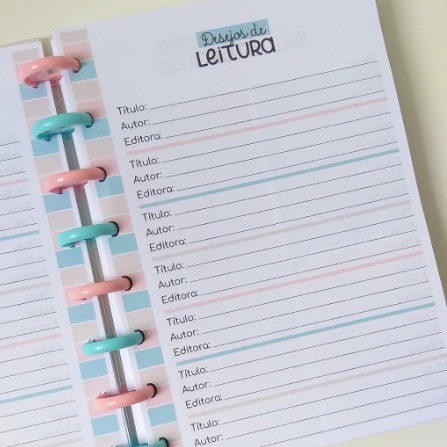 Desejos de
LEITURA
Título:
Autor:
Editora:
Título:
Autor:
Editora:
Título:
Autor:
Editora:
Título:
Autor:
Editora:
Título:
Autor:
Editora:
Título:
Autor:
Editora:
Título:
Autor: